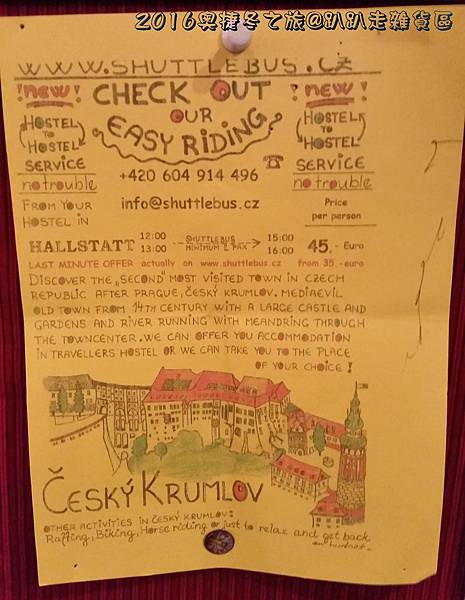 2016奧捷冬之旅@趴趴走雜貨區
WWW.SHUTTLEBUS.CZ
!new! CHECK OUT !new!
OUR
EASY RIDING
HOSTEL TO HOSTEL SERVICE
HOSTEL TO HOSTEL SERVICE
no trouble
no trouble
+420 604 914 496
info@shuttlebus.cz
FROM YOUR HOSTEL IN
Price per person
HALLSTATT 12:00 SHUTTLEBUS 15:00 45,- Euro
13:00 MINIMUM 2 PAX 16:00
LAST MINUTE OFFER actually on www.shuttlebus.cz from 35.-euro
DISCOVER THE „SECOND" MOST VISITED TOWN IN CZECH
REPUBLIC AFTER PRAGUE, ČESKÝ KRUMLOV. MEDIAEVIL
OLD TOWN FROM 14TH CENTURY WITH A LARGE CASTLE AND
GARDENS AND RIVER RUNNING WITH MEANDRING THROUGH
THE TOWNCENTER. WE CAN OFFER YOU ACCOMMODATION
IN TRAVELLERS HOSTEL OR WE CAN TAKE YOU TO THE PLACE
OF YOUR CHOICE!
ČESKÝ KRUMLOV
OTHER ACTIVITIES IN ČESKÝ KRUMLOV:
Rafting, Biking, Horse riding or just to relax and get back